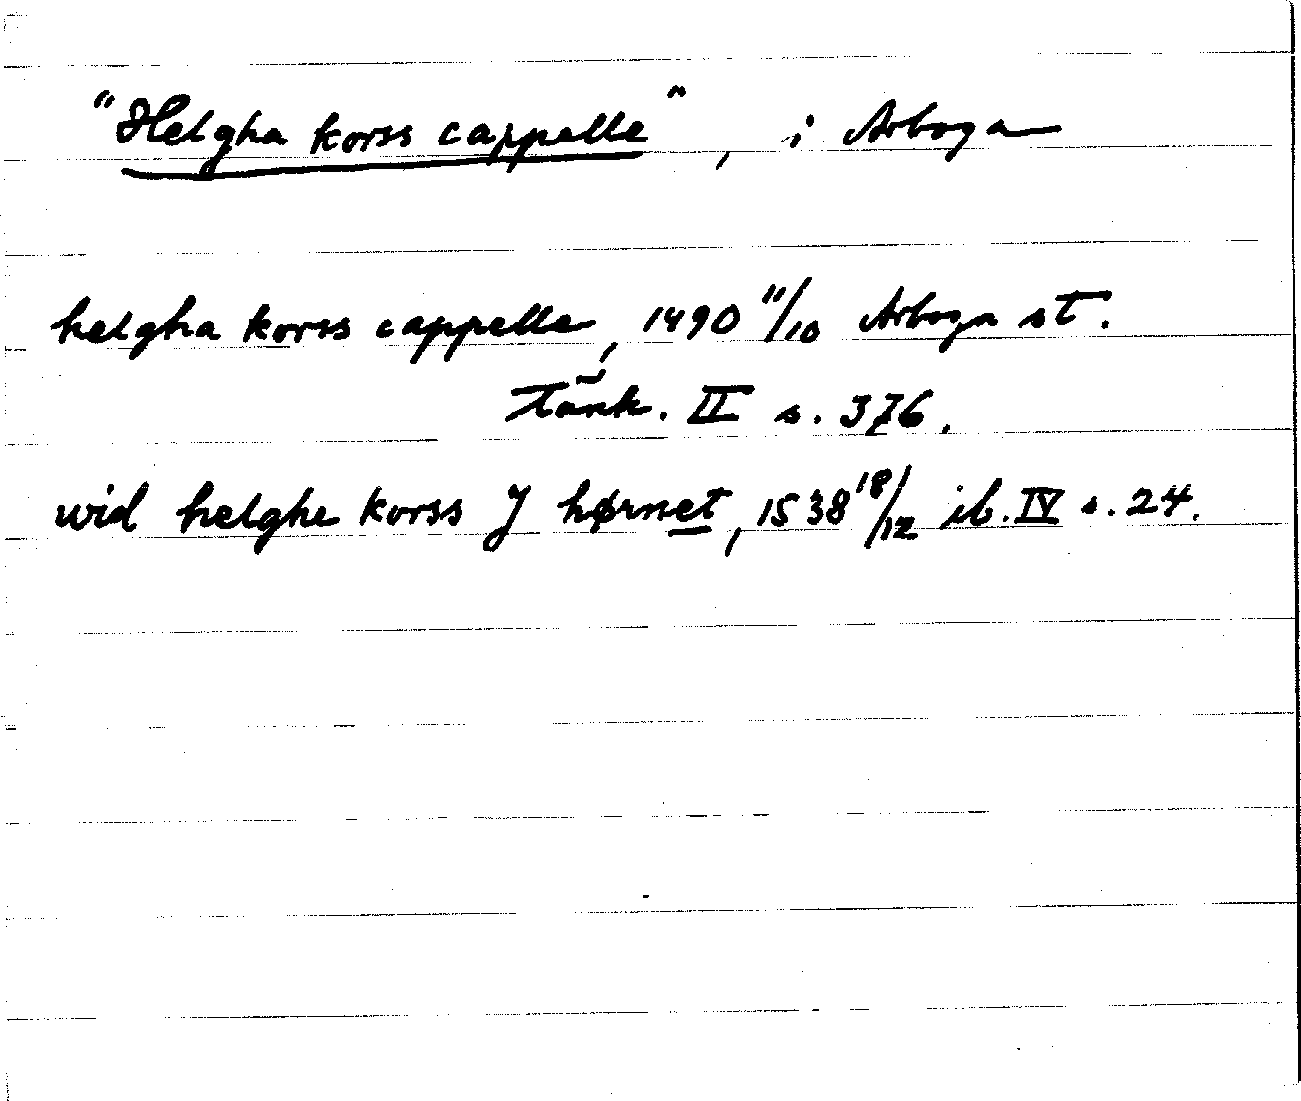 "Helgha korss cappelle", i Arboga
helgha korss cappelle, 1490 11/10 Arboga st.
tänk. II s. 376.
wid helghe korss J hørnet, 1538 18/12 ib. IV s. 24.